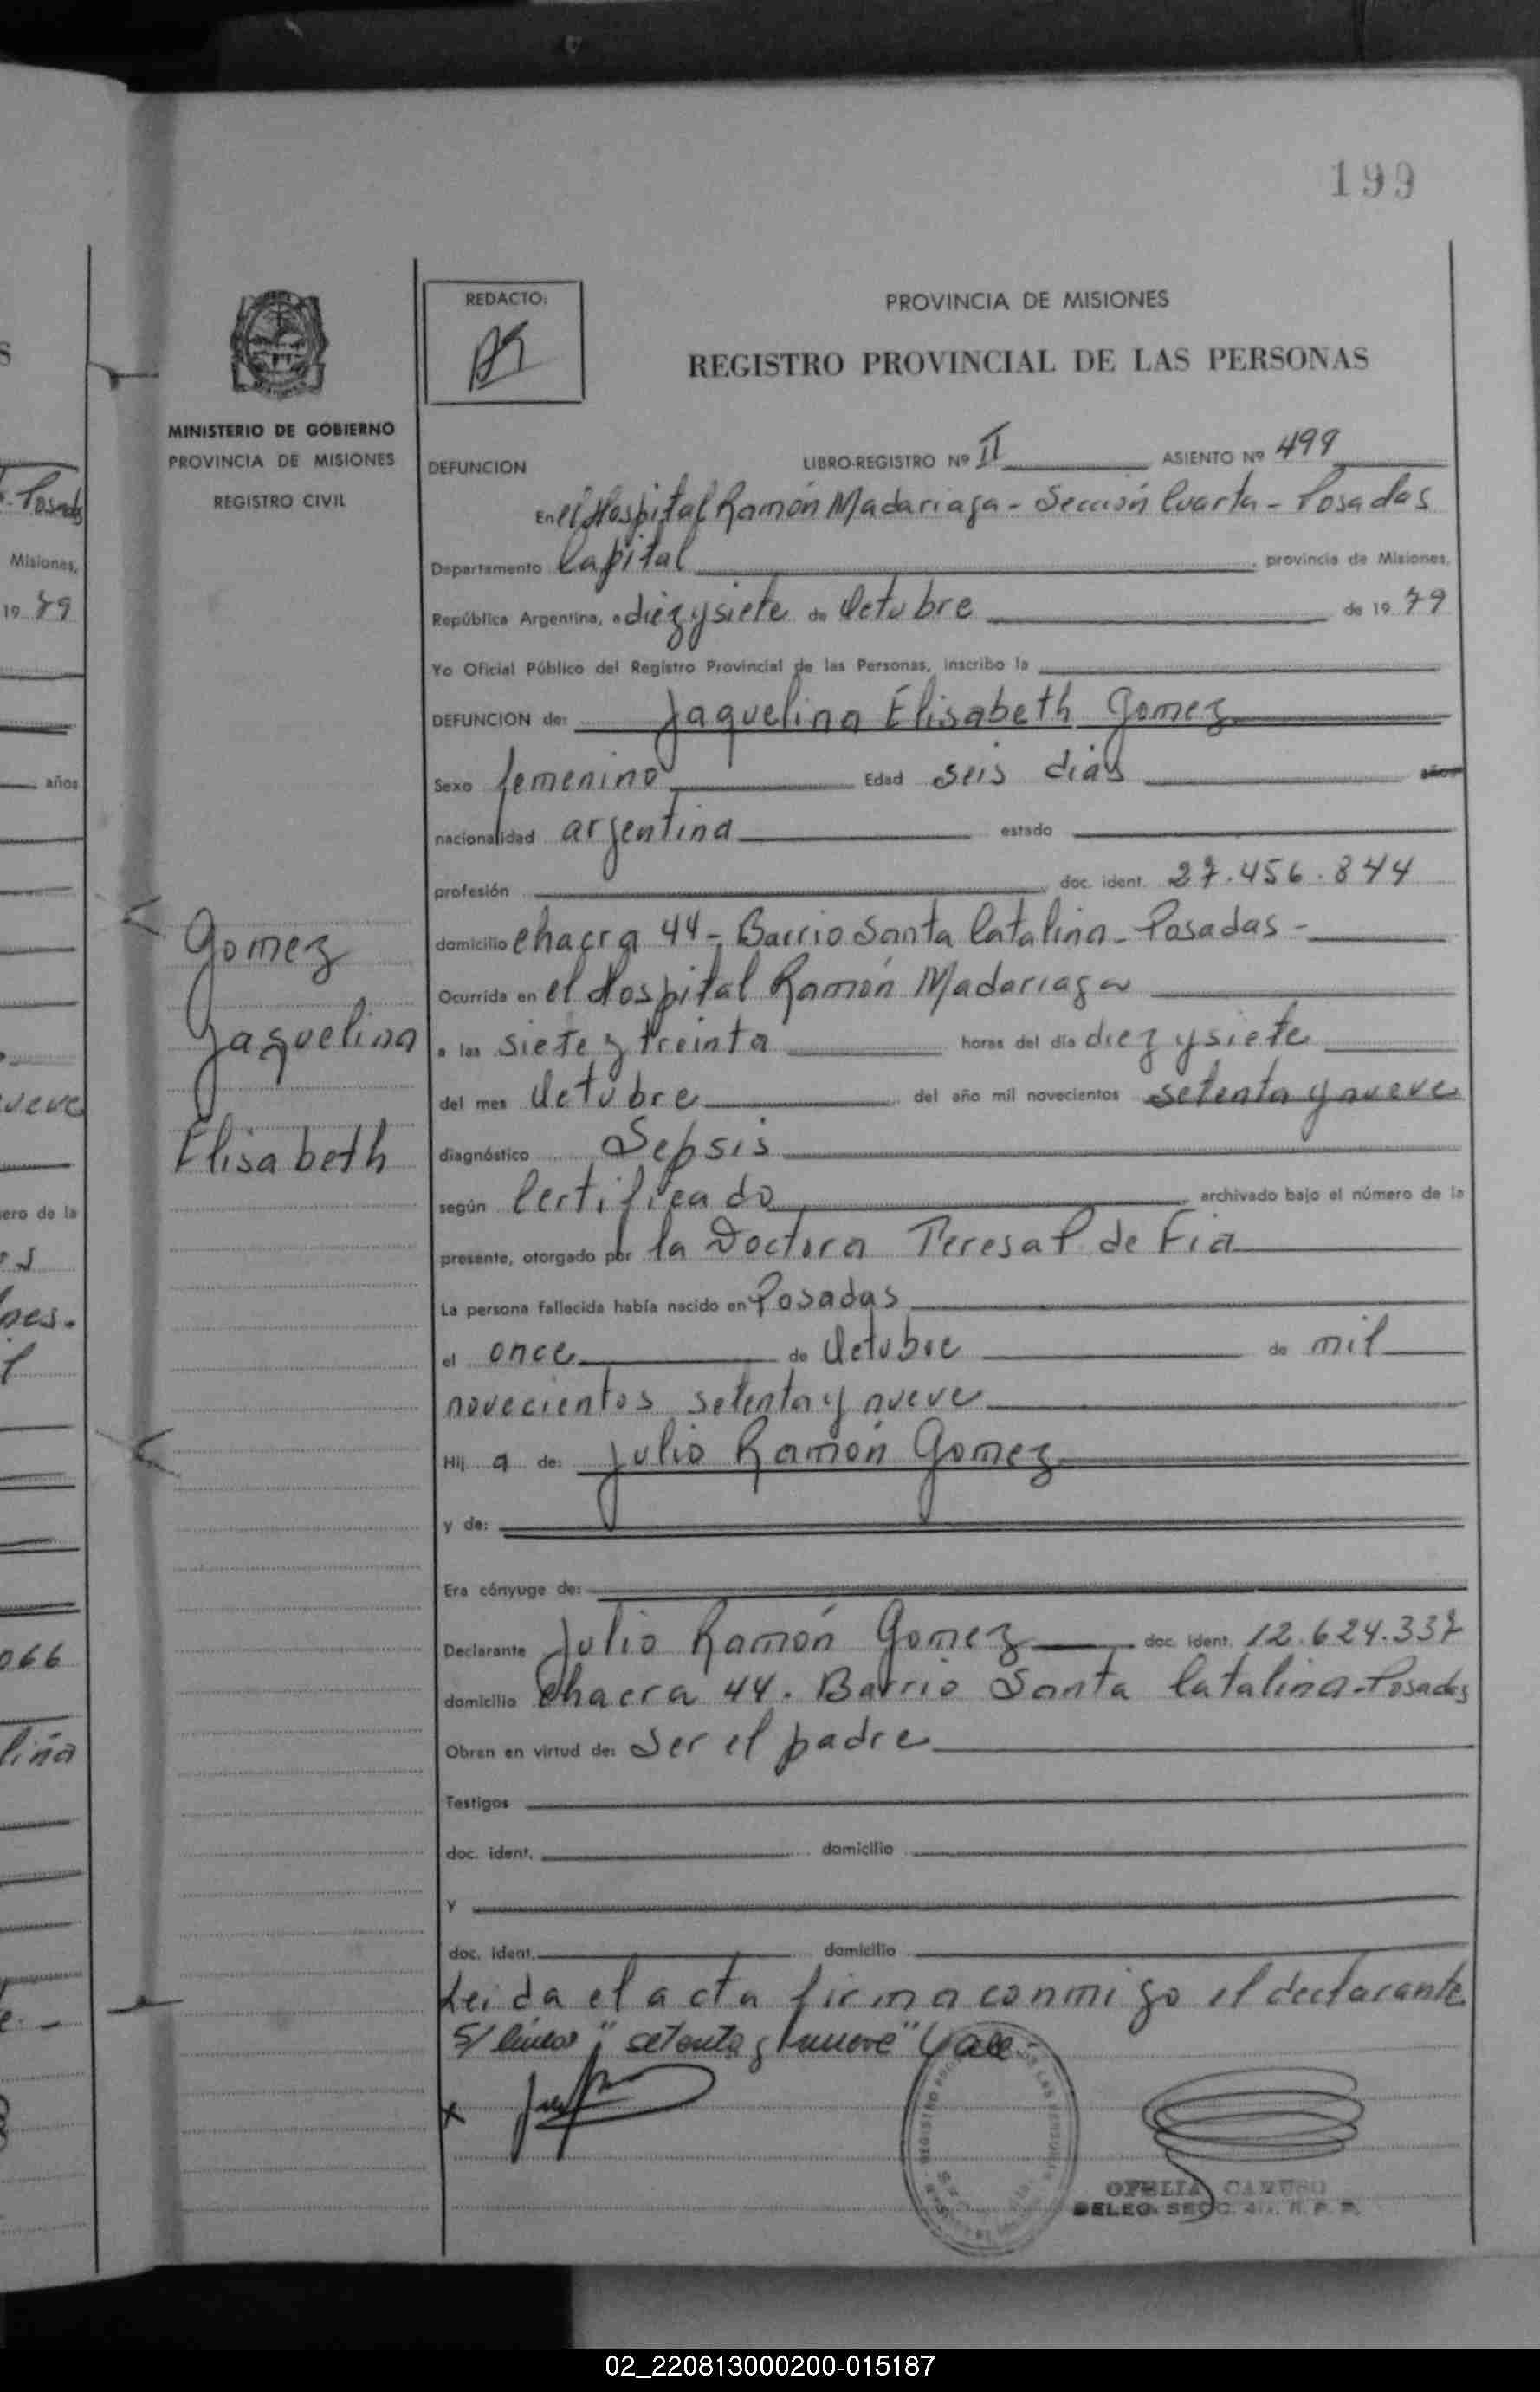 199
REDACTO:
PROVINCIA DE MISIONES
REGISTRO PROVINCIAL DE LAS PERSONAS
MINISTERIO DE GOBIERNO
PROVINCIA DE MISIONES
REGISTRO CIVIL
DEFUNCION LIBRO-REGISTRO Nº II ASIENTO Nº 499
En el Hospital Ramón Madariaga - Sección Cuarta - Posadas
Departamento Capital, provincia de Misiones,
República Argentina, a diez y siete de Octubre de 1979
Yo Oficial Público del Registro Provincial de las Personas, inscribo la
DEFUNCION de: Jaquelina Elisabeth Gomez
Sexo femenino Edad seis dias años
nacionalidad argentina estado
profesión doc. ident. 27.456.844
Gomez
Jaquelina
Elisabeth
domicilio chacra 44 - Barrio Santa Catalina - Posadas -
Ocurrida en el Hospital Ramón Madariaga
a las siete y treinta horas del día diez y siete
del mes Octubre del año mil novecientos setenta y nueve
diagnóstico Sepsis
según Certificado, archivado bajo el número de la
presente, otorgado por la Doctora Teresa P de Fia
La persona fallecida había nacido en Posadas
el once de Octubre de mil
novecientos setenta y nueve
Hij a de: Julio Ramón Gomez
y de:
Era cónyuge de:
Declarante Julio Ramón Gomez doc. ident. 12.624.337
domicilio Chacra 44. Barrio Santa Catalina - Posadas
Obran en virtud de: Ser el padre
Testigos
doc. ident. domicilio
y
doc. ident. domicilio
Leida el acta firma conmigo el declarante
S/ linea "setenta y nueve" Vale.-
x
OFELIA CARUSO
DELEG. SECC. 4ta. R. P. P.
Posadas
Misiones,
1979
años
ueve
ero de la
nes.
066
lina
02_220813000200-015187